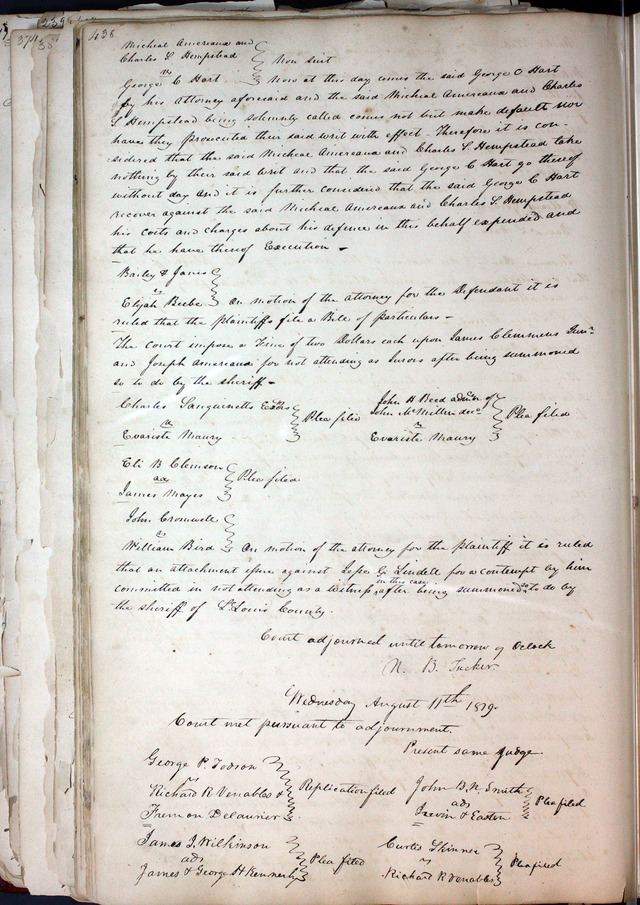 438
Micheal Amereaux and
Charles S Hempstead } Non suit
vs
George C Hart. Now at this day comes the said George C Hart
by his Attorney aforesaid and the said Micheal Amereaux and Charles
S Hempstead being solemnly called comes not but make default nor
have they prosecuted their said writ with effect - Therefore it is con-
sidered that the said Micheal Amereaux and Charles S Hempstead take
nothing by their said writ and that the said George C Hart go thereof
without day and it is further considered that the said George C Hart
recover against the said Micheal Amereaux and Charles S Hempstead
his costs and charges about his defence in this behalf expended and
that he have thereof Execution -
Bailey & James
vs
Elijah Beebe } On motion of the attorney for the Defendant it is
ruled that the plaintiffs file a Bill of particulars -
The Court impose a Fine of two Dollars each upon James Clemmens Junr
and Joseph Amereaux for not attending as Jurors after being summoned
so to do by the sheriff -
Charles Sanguinetts Exors
vs
Evariste Maury } Plea filed
John H Reed admr of
John McMillen decd
vs
Evariste Maury } Plea filed
Eli B Clemson
ads
James Mayes } Plea filed
John Cromwell
vs
William Bird } On motion of the attorney for the plaintiff it is ruled
that an attachment issue against G Lindell for a contempt by him
committed in not attending as a witness in this case after being summoned so to do by
the sheriff of St Louis County.
Court adjourned until tomorrow 9 Oclock
N. B. Tucker
Wednesday August 11th 1819.
Court met pursuant to adjournment.
Present same Judge.
George P. Todson
vs
Richard R Venables &
Fremon Delaurier } Replication filed
John B. N. Smith
ads
Irevin & Easton } Plea filed
James J. Wilkinson
ads
James & George H Kennerly } Plea filed
Curtis Skinner
vs
Richard R Venables } Plea filed